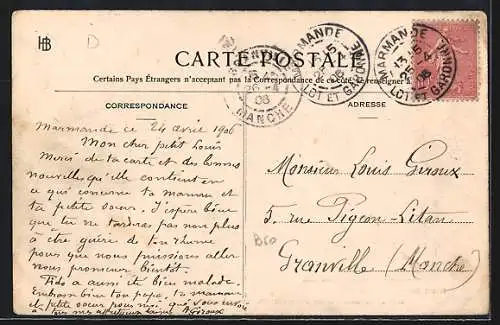 HB
D
CARTE POSTALE
Certains Pays Étrangers n'acceptent pas la Correspondance de ce côté, se renseigner à
CORRESPONDANCE
ADRESSE
MARMANDE
LOT ET GARONNE
MARMANDE
LOT ET GARONNE
MANCHE
Marmande ce 24 avril 1906
Mon cher petit Louis
Merci de ta carte et des bonnes
nouvelles qu'elle contient en
ce qui concerne ta maman et
ta petite soeur. J'espère bien
que tu ne tarderas pas non plus
à être guéri de ton rhume
pour que nous puissions aller
nous promener bientôt.
Fido a aussi été bien malade.
Embrasse bien ton papa, ta maman
et petite soeur pour moi, qui
Giroux
Monsieur Louis Giroux
5, rue Pigeon-Litan
B60
Granville (Manche)